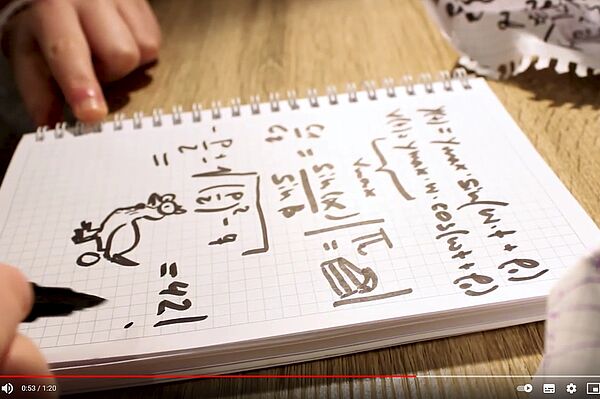 y(t) = ymax · sin(ωt + φ₀)
v(t) = ymax ω · cos(ωt + φ₀)
vmax
c₁/c₂ = sin(α)/sin β
π
-p/2 ± √((p/2)² - q)
=
= 42!
0:53 / 1:20